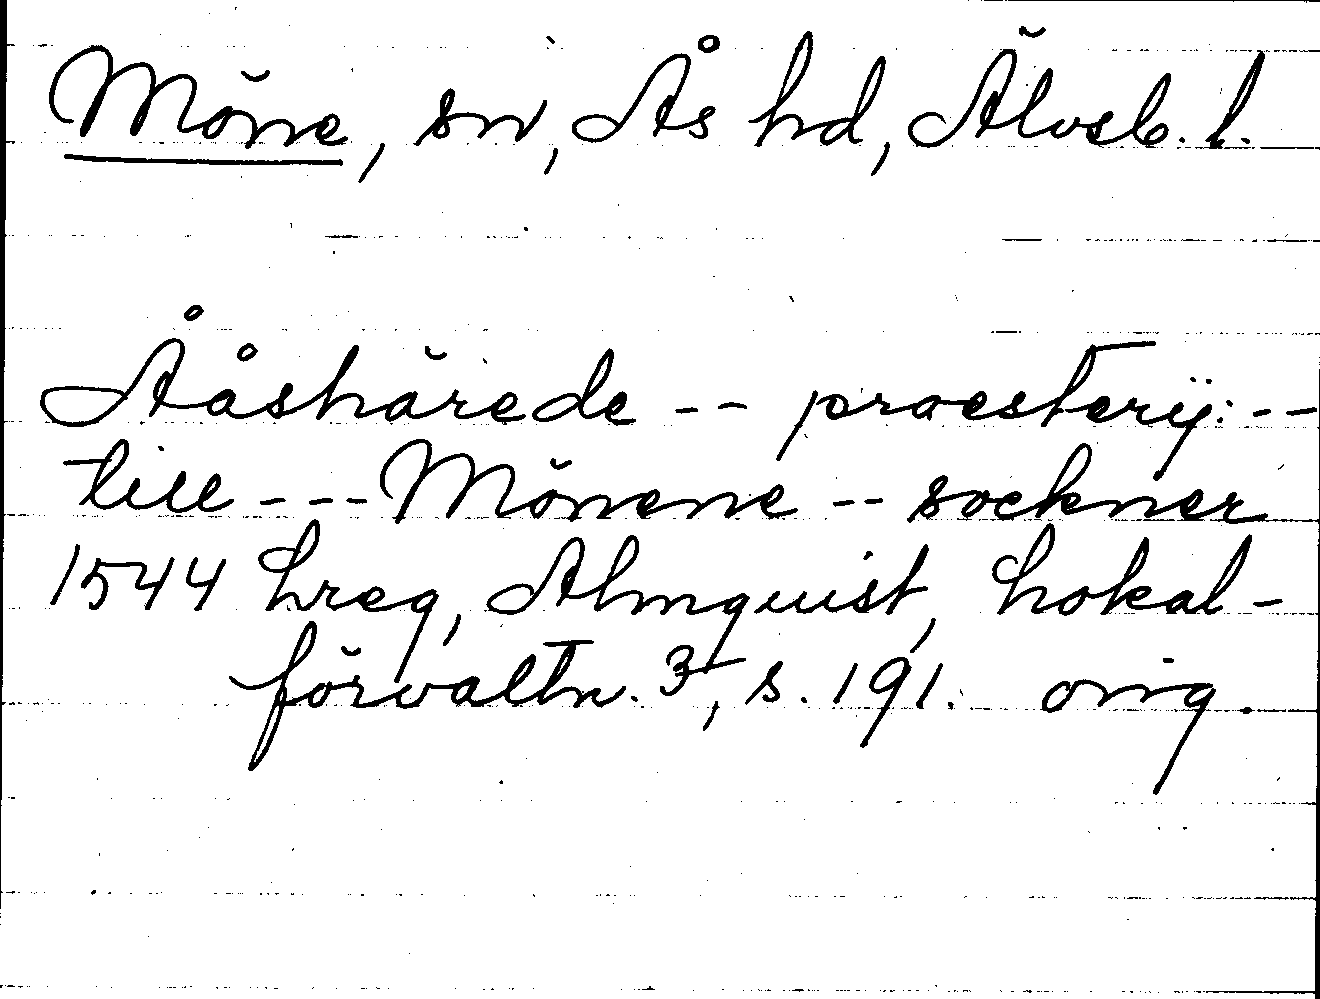 Möne, sn, Ås hd, Älvsb. l.
Ååshärede -- praesterij: --
till --- Mönene -- sockner
1544 hreg, Almquist, Lokal-
förvaltn. 3, s. 191. orig.